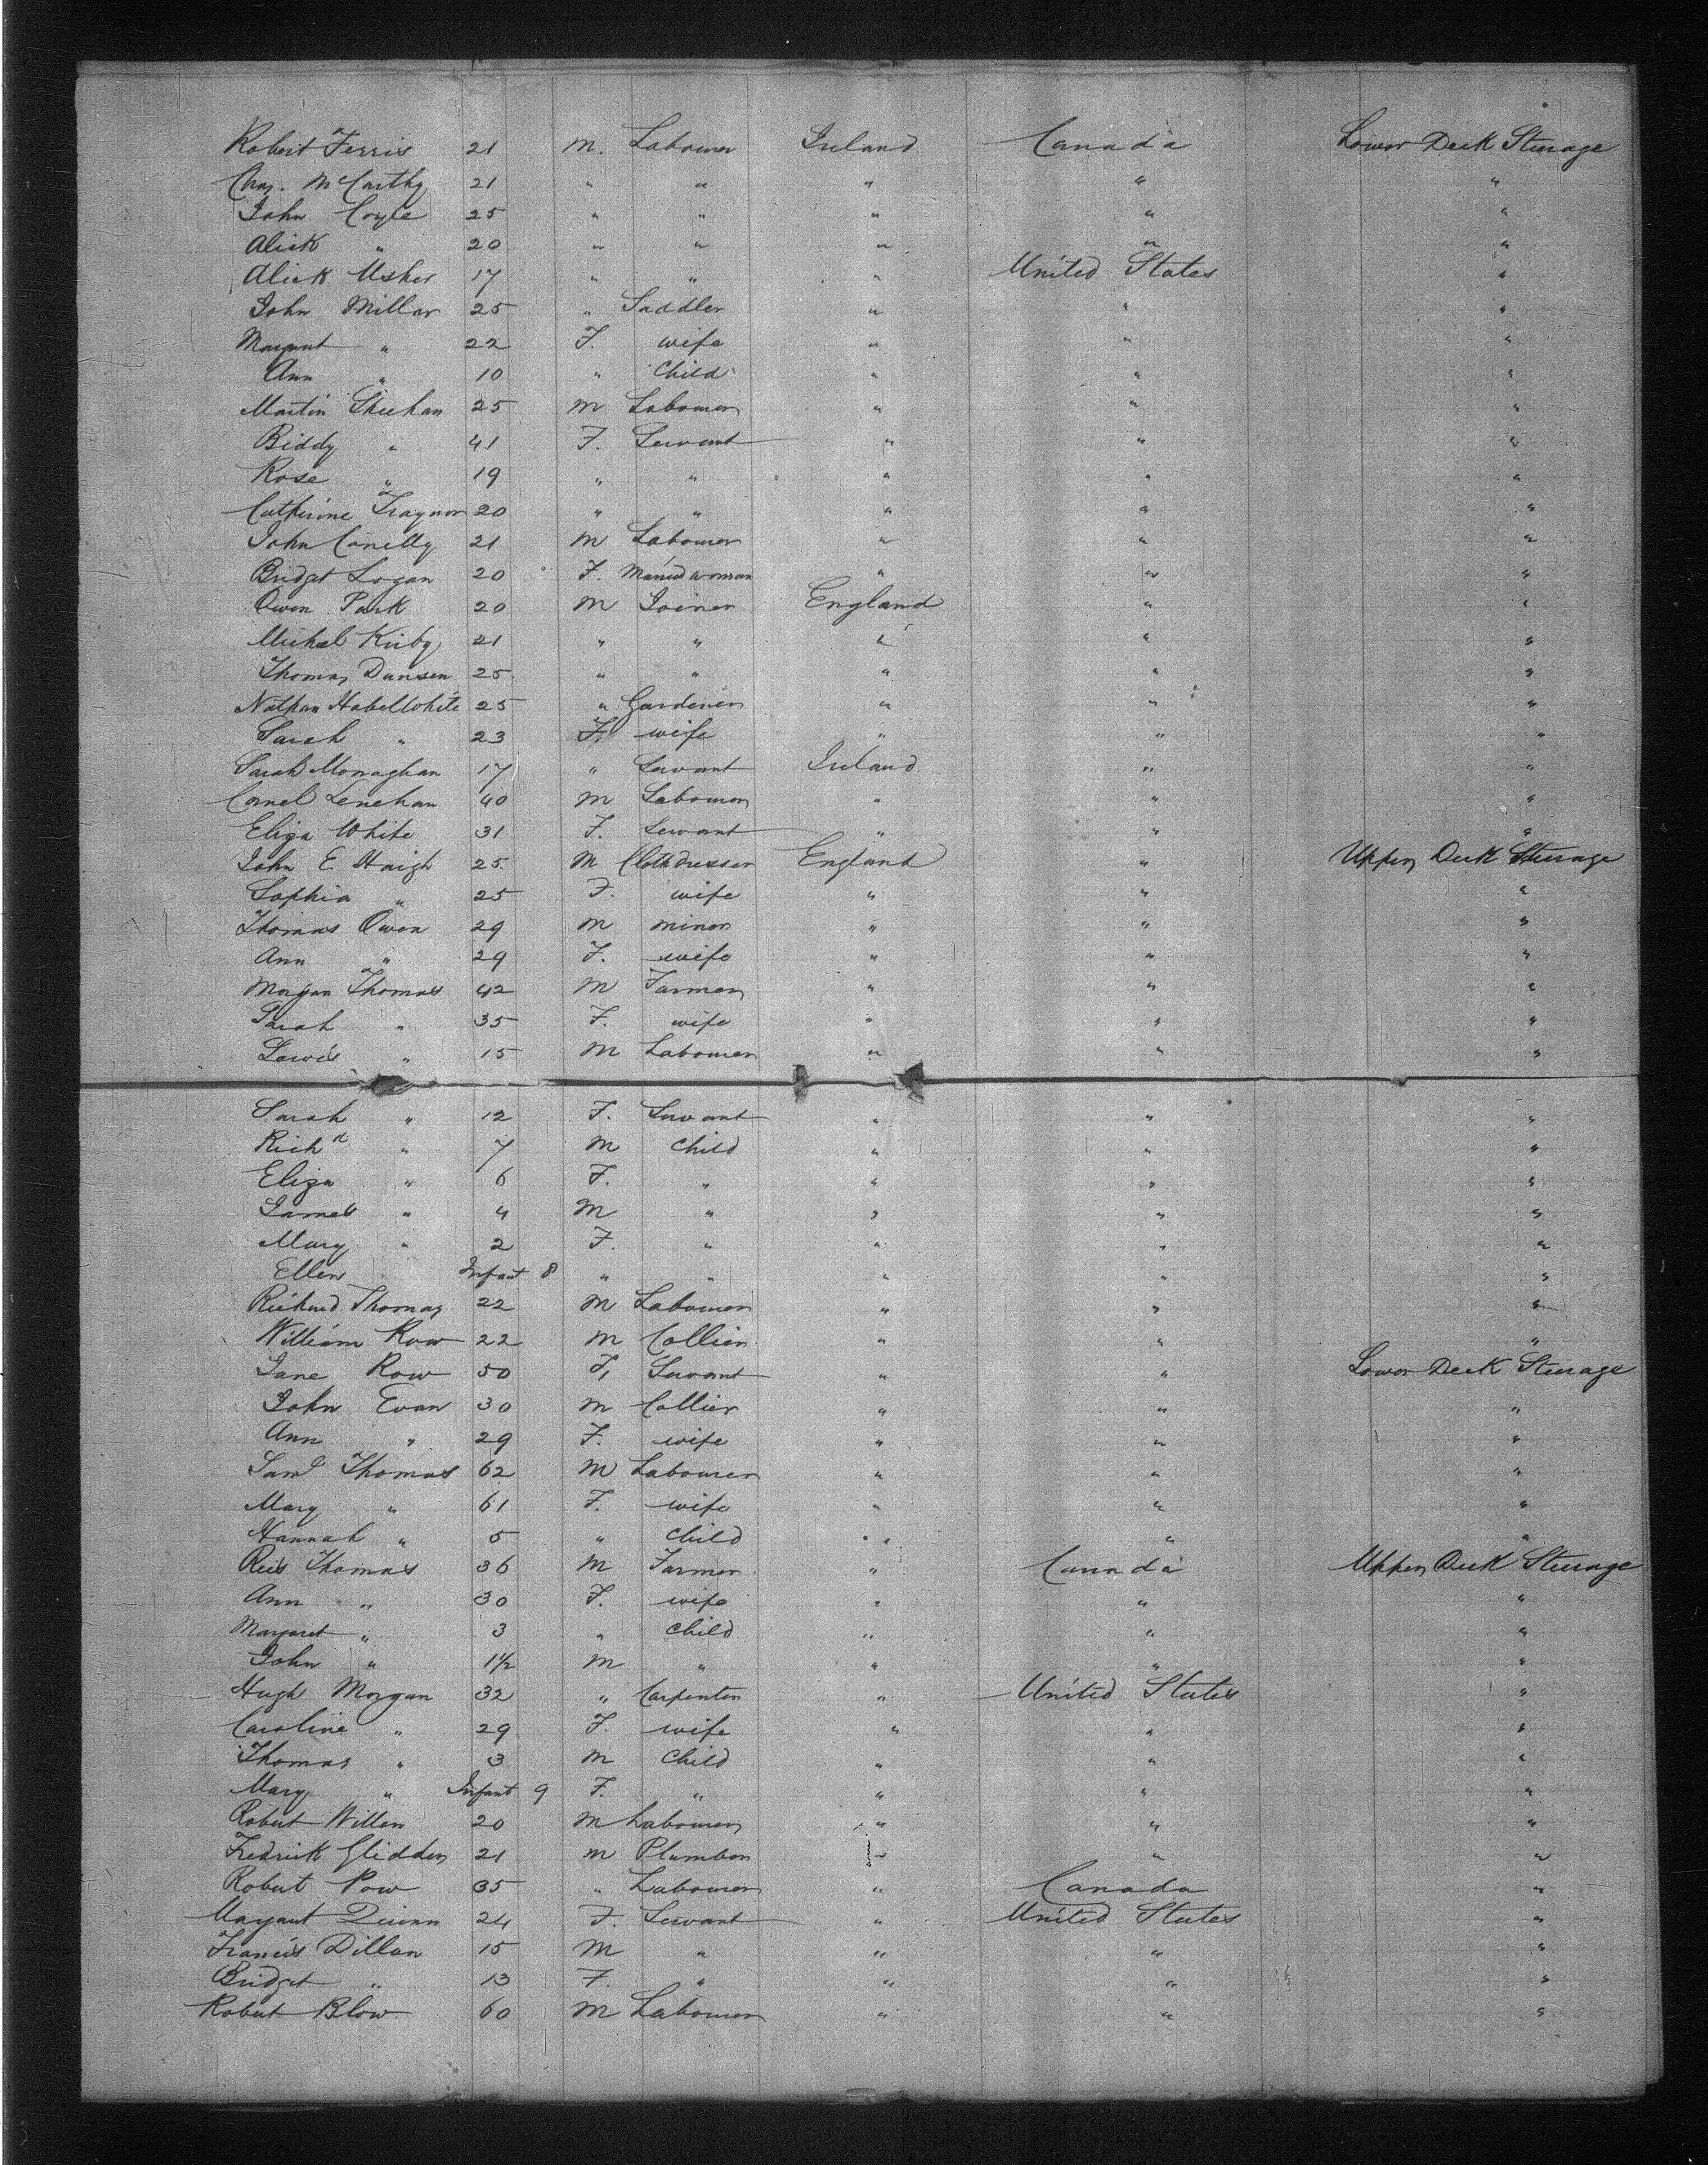 Robert Ferris 21 M. Labourer Ireland Canada Lower Deck Steerage
Chas. McCarthy 21 " " " " "
John Coyle 25 " " " " "
Alick " 20 " " " " "
Alick Usher 17 " " " United States "
John Millar 25 " Saddler " " "
Margaret " 22 F. wife " " "
Ann " 10 " Child " " "
Martin Sheehan 25 M Labourer " " "
Biddy " 41 F. Servant " " "
Rose " 19 " " " " "
Catherine Traynor 20 " " " " "
John Conelly 21 M Labourer " " "
Bridget Logan 20 F. Married woman " " "
Owen Park 20 M Joiner England " "
Michael Kirby 21 " " " " "
Thomas Dunsen 25 " " " " "
Nathan Habellwhite 25 " Gardener " " "
Sarah " 23 F. wife " " "
Sarah Monaghan 17 " Servant Ireland " "
Cornel Lenehan 40 M Labourer " " "
Eliza White 31 F. Servant " " "
John E. Haigh 25 M Clothdresser England " Upper Deck Steerage
Sophia " 25 F. wife " " "
Thomas Owen 29 M miner " " "
Ann " 29 F. wife " " "
Morgan Thomas 42 M Farmer " " "
Sarah " 35 F. wife " " "
Lewis " 15 M Labourer " " "
Sarah " 12 F. Servant " " "
Richd " 7 M Child " " "
Eliza " 6 F. " " " "
James " 4 M " " " "
Mary " 2 F. " " " "
Ellen Infant 8 " " " " "
Richard Thomas 22 M Labourer " " "
William Row 22 M Collier " " "
Jane Row 50 F. Servant " " Lower Deck Steerage
John Evan 30 M Collier " " "
Ann " 29 F. wife " " "
Saml Thomas 62 M Labourer " " "
Mary " 61 F. wife " " "
Hannah " 5 " Child " " "
Rees Thomas 36 M Farmer " Canada Upper Deck Steerage
Ann " 30 F. wife " " "
Margaret " 3 " Child " " "
John " 1½ M " " " "
Hugh Morgan 32 " Carpenter " United States "
Caroline " 29 F. wife " " "
Thomas " 3 M Child " " "
Mary " Infant 9 F. " " " "
Robert Willen 20 M Labourer " " "
Fredrick Glidden 21 M Plumber " " "
Robert Pow 35 " Labourer " Canada "
Margaret Quinn 24 F. Servant " United States "
Francis Dillan 15 M " " " "
Bridget " 13 F. " " " "
Robert Blow 60 M Labourer " " "